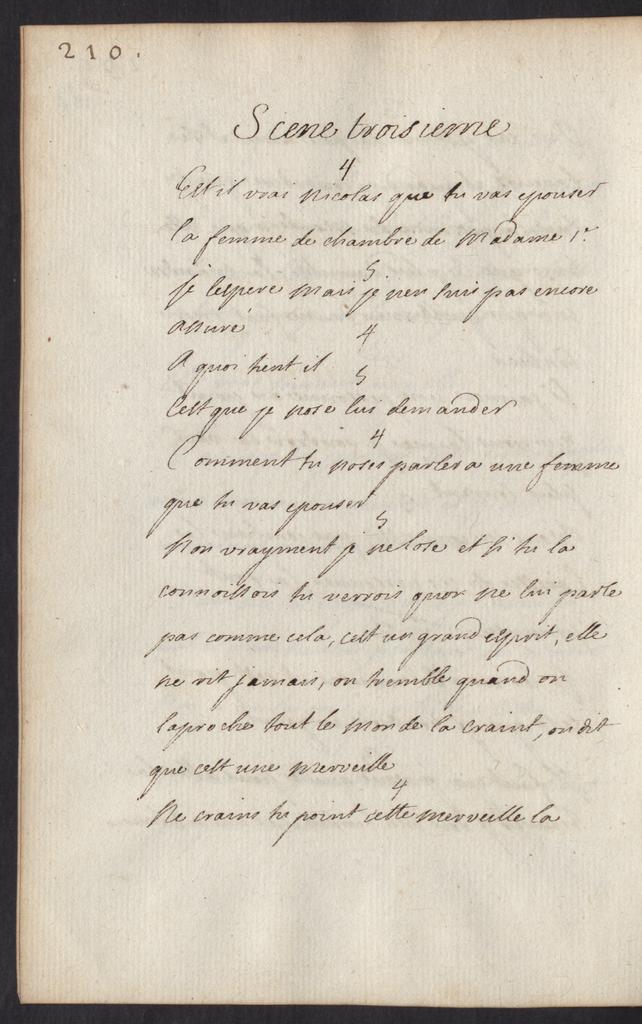 210.
Scene troisieme
4
Est il vrai Nicolas que tu vas epouser
la femme de chambre de Madame 1.e
5
je lespere Mais je nen suis pas encore
assuré
4
A quoi tient il
5
Cest que je nose lui demander
4
Comment tu noses parler a une femme
que tu vas epouser
5
Non vrayment je ne lose et si tu la
connoissois tu verrois quon ne lui parle
pas comme cela, cest un grand esprit, elle
ne rit jamais, on tremble quand on
laproche tout le Monde la craint, on dit
que cest une Merveille
4
Ne crains tu point cette Merveille la